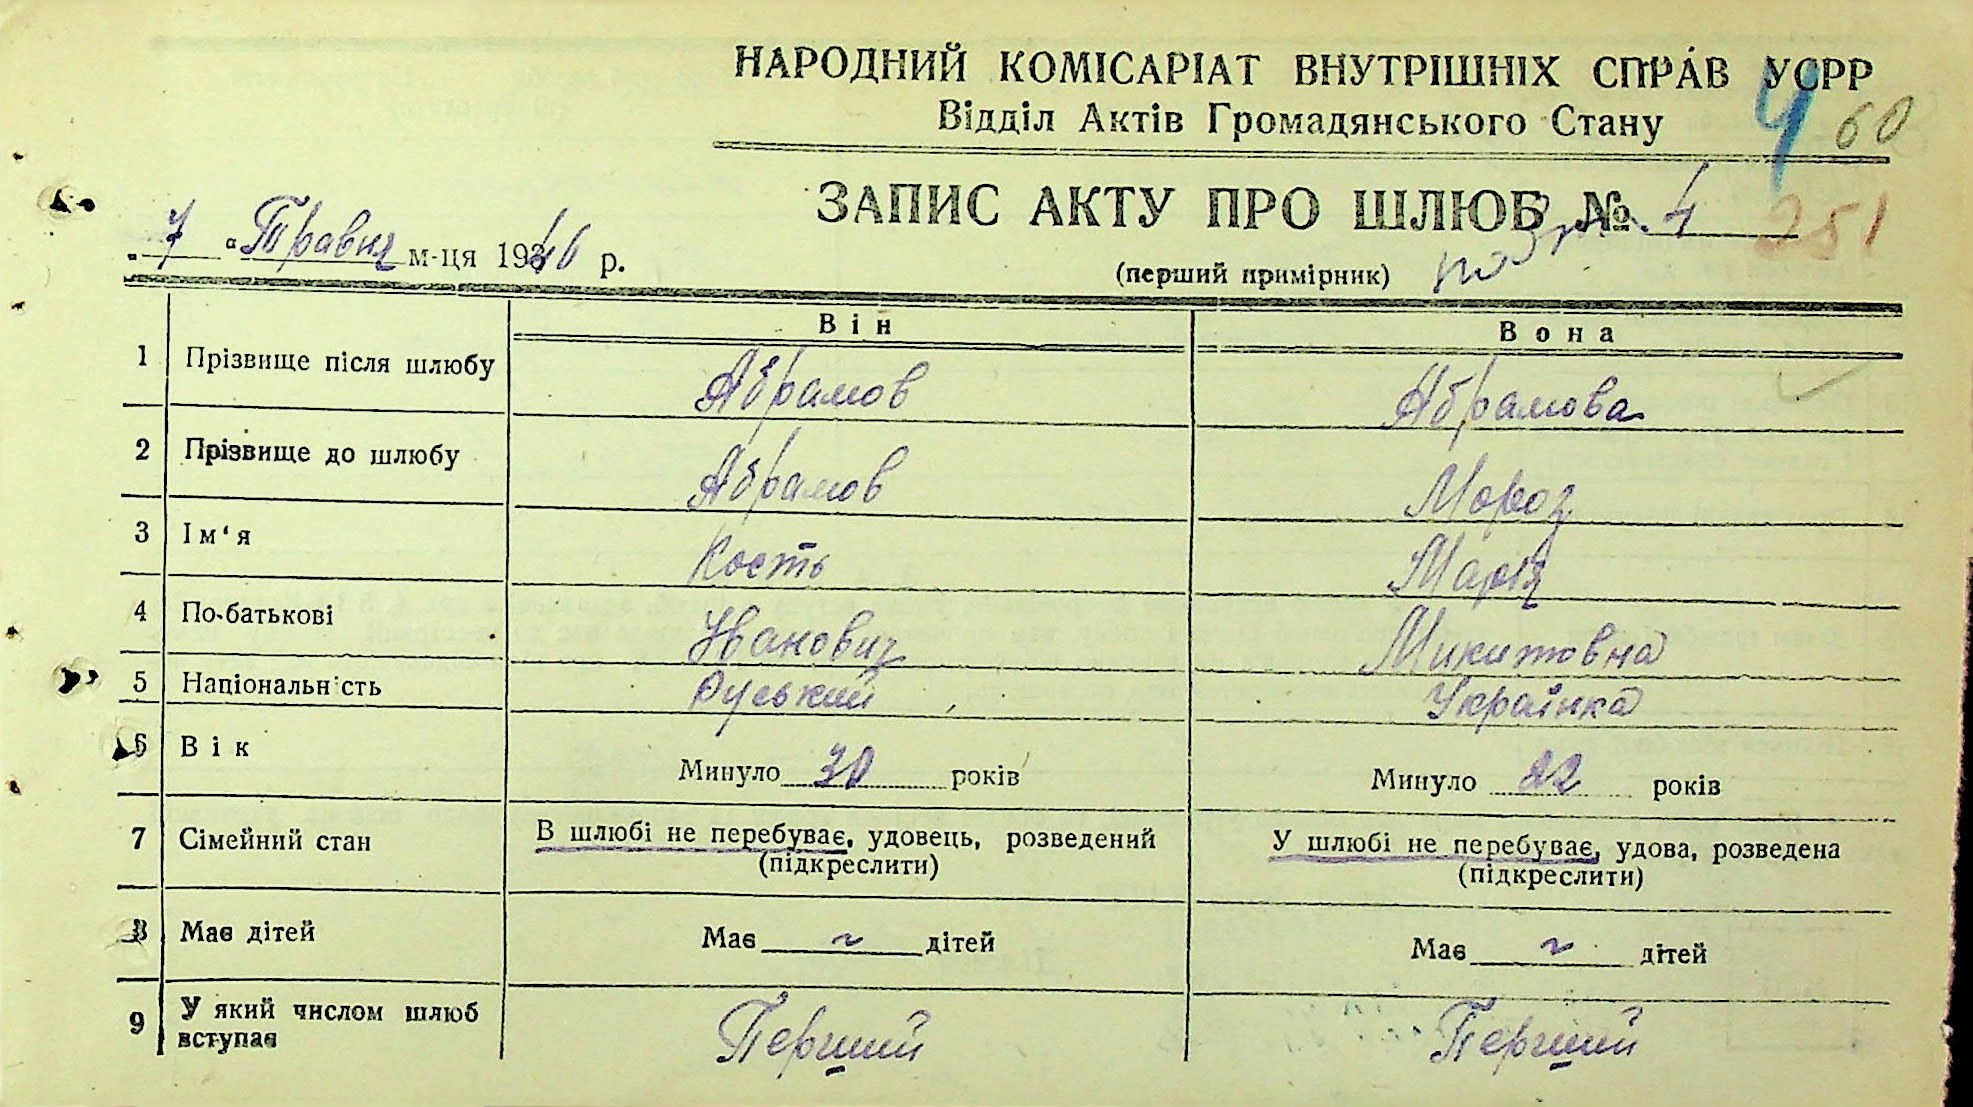 НАРОДНИЙ КОМІСАРІАТ ВНУТРІШНІХ СПРАВ УСРР
Відділ Актів Громадянського Стану
4 60
ЗАПИС АКТУ ПРО ШЛЮБ № 4
251
„ 7 " Травня м-ця 1940 р.
(перший примірник)
Він Вона
1 Прізвище після шлюбу Абрамов Абрамова
2 Прізвище до шлюбу Абрамов Мороз
3 Ім'я Кость Марія
4 По-батькові Іванович Микитовна
5 Національність Руський Українка
6 Вік Минуло 30 років Минуло 22 років
7 Сімейний стан В шлюбі не перебуває, удовець, розведений У шлюбі не перебуває, удова, розведена
(підкреслити) (підкреслити)
8 Має дітей Має ~ дітей Має ~ дітей
9 У який числом шлюб вступає Перший Перший